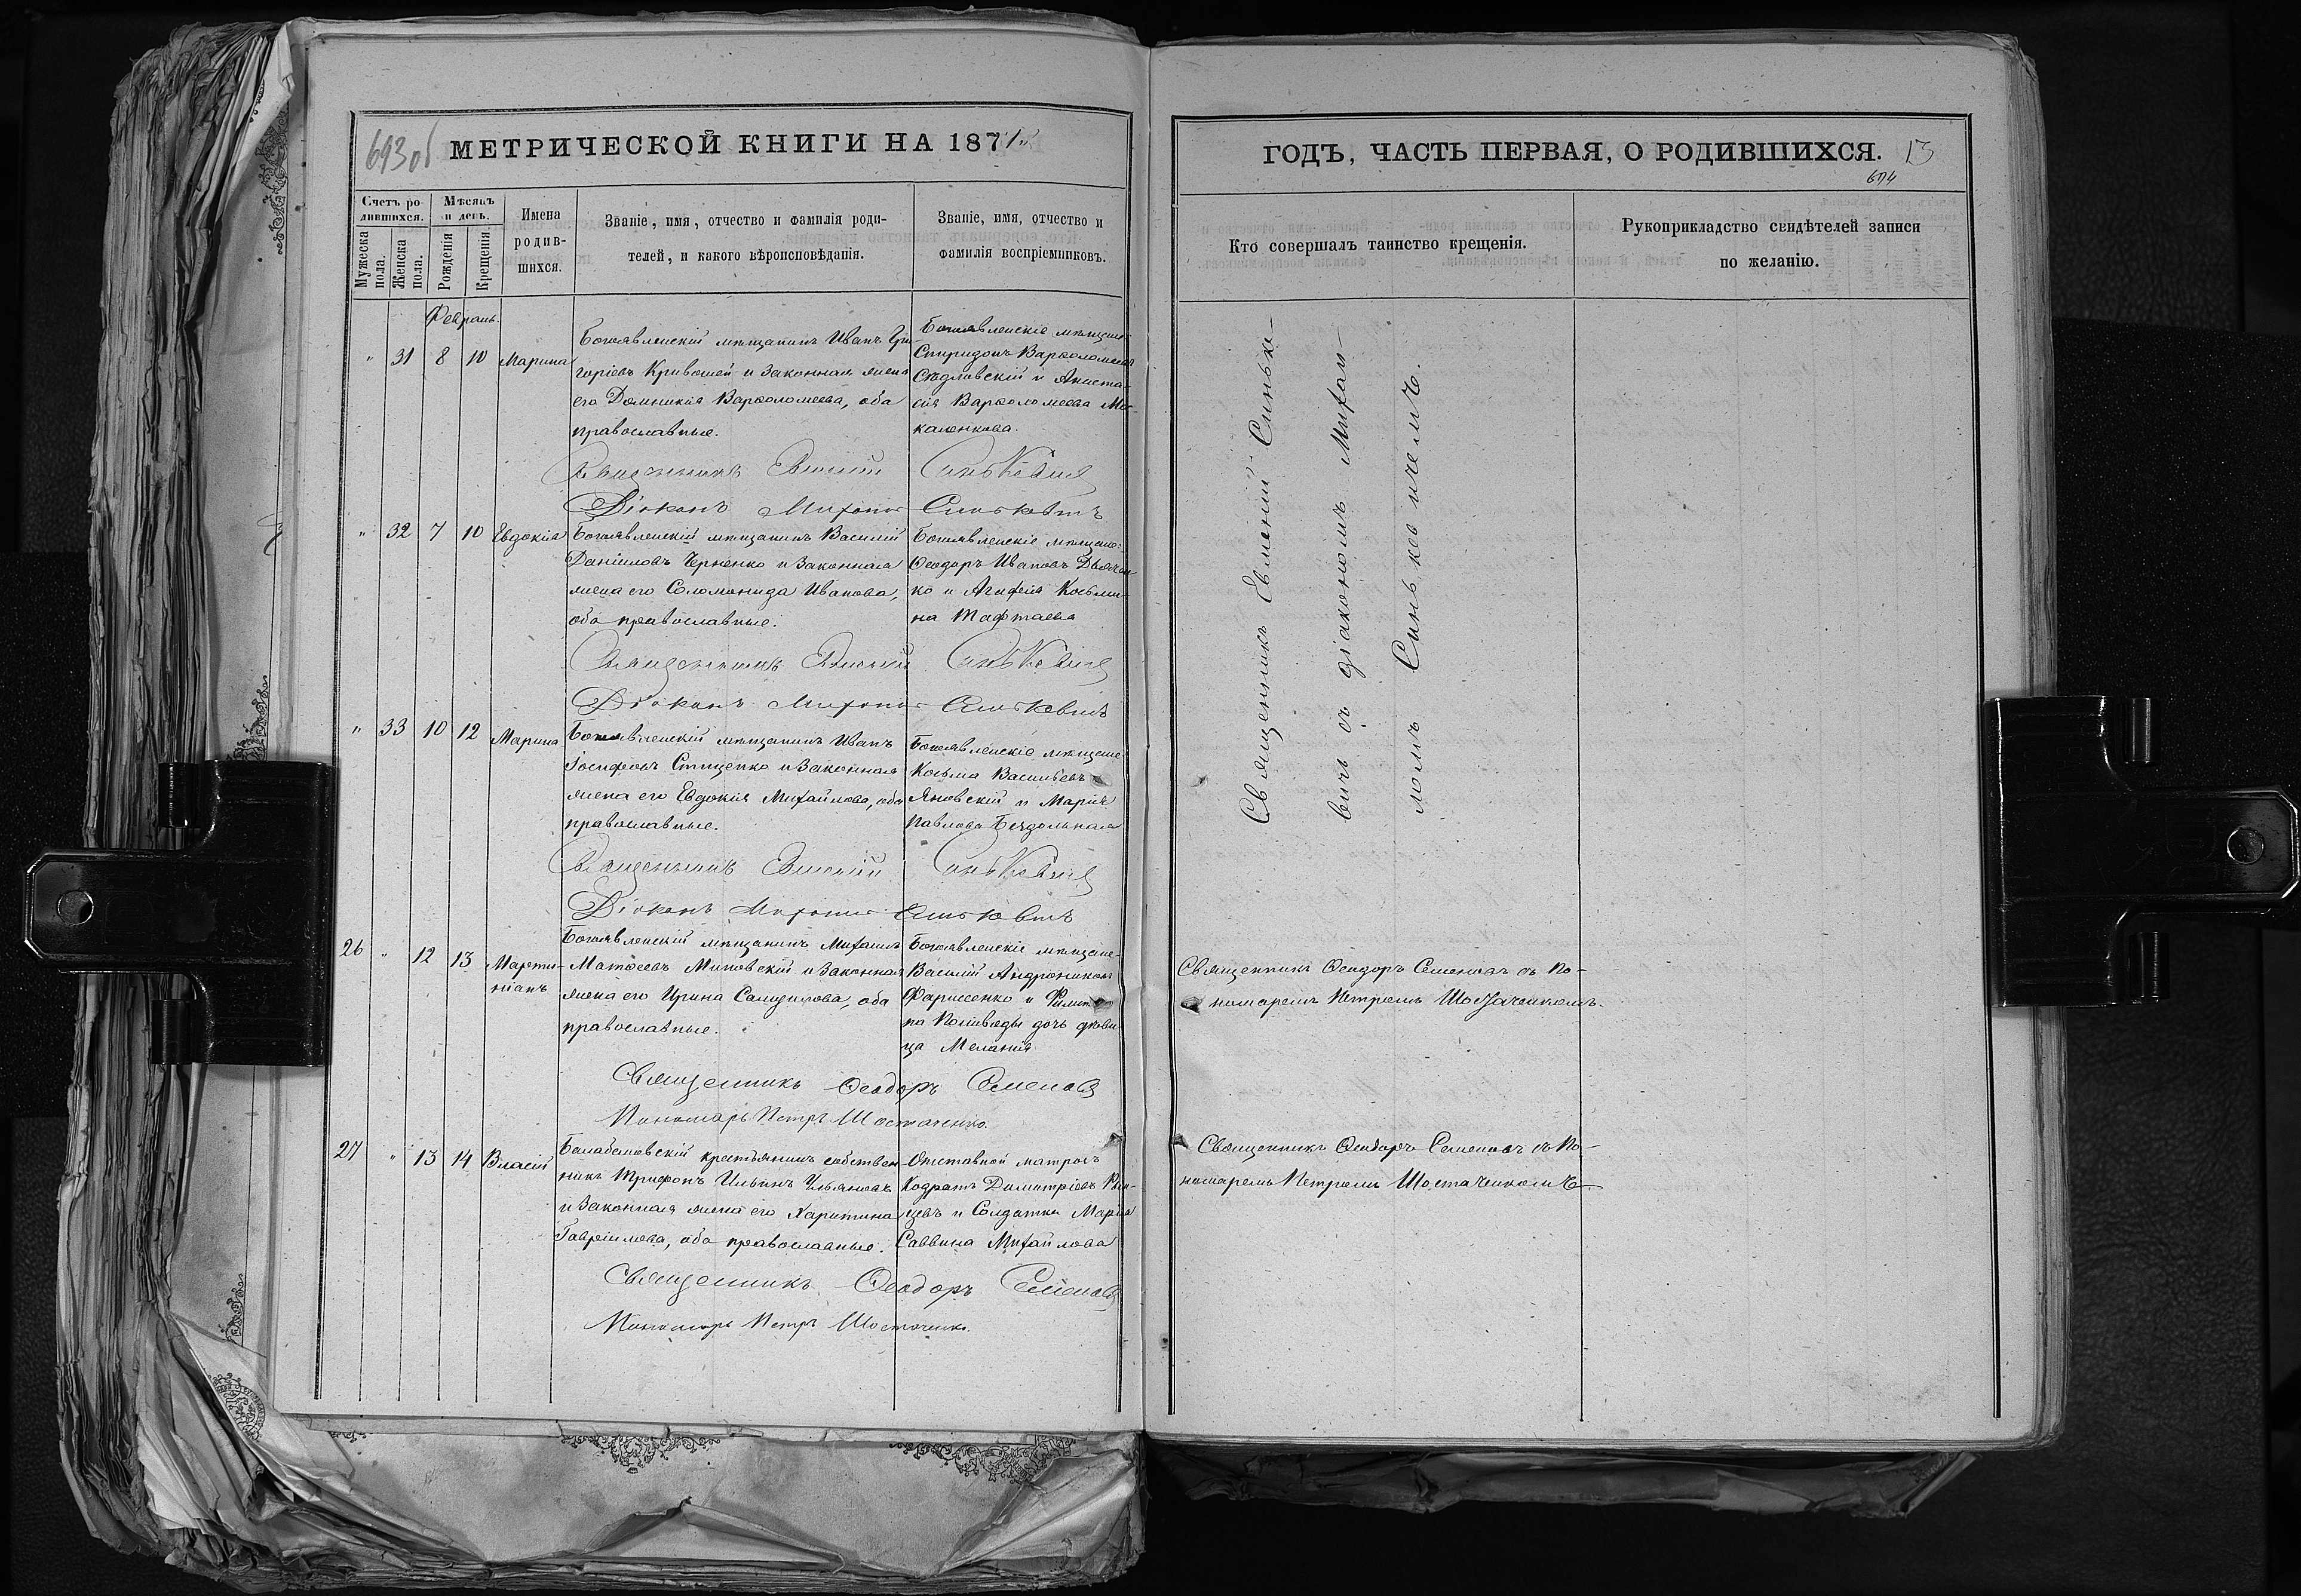 693 об МЕТРИЧЕСКОЙ КНИГИ НА 1871
Счетъ ро-
дившихся.
Мѣсяцъ
и день.
Мужеска
пола.
Женска
пола.
Рожденія
Крещенія.
Имена
родив-
шихся.
Званіе, имя, отчество и фамилія роди-
телей, и какого вѣроисповѣданія.
Званіе, имя, отчество и
фамилія воспріемниковъ.
Февраль.
" 31 8 10 Марина
Богоявленскій мѣщанинъ Иванъ Гри-
горіевъ Кривошей и законная жена
его Домникія Варѳоломеева, оба
православные.
Богоявленскіе мѣщане
Спиридонъ Варѳоломеевъ
Сѣдловскій и Анаста-
сія Варѳоломеева
Священникъ Евмений Синькевичъ
Діаконъ Михаилъ Синькевичъ
" 32 7 10 Евдокія
Богоявленскій мѣщанинъ Василій
Даніиловъ Черненко и законная
жена его Соломонида Иванова,
оба православные.
Богоявленскіе мѣщане
Ѳеодоръ Ивановъ Дьячен-
ко и Агафія Косьми-
на Тафтаева
Священникъ Евмений Синькевичъ
Діаконъ Михаилъ Синькевичъ
" 33 10 12 Марина
Богоявленскій мѣщанинъ Иванъ
Іосифовъ Стиценко и законная
жена его Евдокія Михайлова, оба
православные.
Богоявленскіе мѣщане
Косьма Васильевъ
Яновскій и Марія
Павлова Бездольная
Священникъ Евмений Синькевичъ
Діаконъ Михаилъ Синькевичъ
26 " 12 13 Марти-
ніанъ
Богоявленскій мѣщанинъ Михаилъ
Матѳеевъ Миновскій и законная
жена его Ирина Самуилова, оба
православные.
Богоявленскіе мѣщане
Василій Андрониковъ
Фарисенко и
дочь дѣви-
ца Меланія
Священникъ Ѳеодоръ Семеновъ
Пономарь Петръ Шостаченко.
27 " 13 14 Власій
Балабановскій крестьянинъ собствен-
никъ Трифонъ Ильинъ Ульяновъ
и законная жена его Харитина
Гавріилова, оба православные.
Отставной матросъ
Кодратъ Димитріевъ
и Солдатка Марія
Саввина Михайлова
Священникъ Ѳеодоръ Семеновъ
Пономарь Петръ Шостаченко.
ГОДЪ, ЧАСТЬ ПЕРВАЯ, О РОДИВШИХСЯ. 13
694
Кто совершалъ таинство крещенія.
Рукоприкладство свидѣтелей записи
по желанію.
Священникъ Евмений Синьке-
вичъ съ діакономъ Михаи-
ломъ Синькевичемъ.
Священникъ Ѳеодоръ Семеновъ съ По-
номаремъ Петромъ Шостаченкомъ.
Священникъ Ѳеодоръ Семеновъ съ По-
номаремъ Петромъ Шостаченкомъ